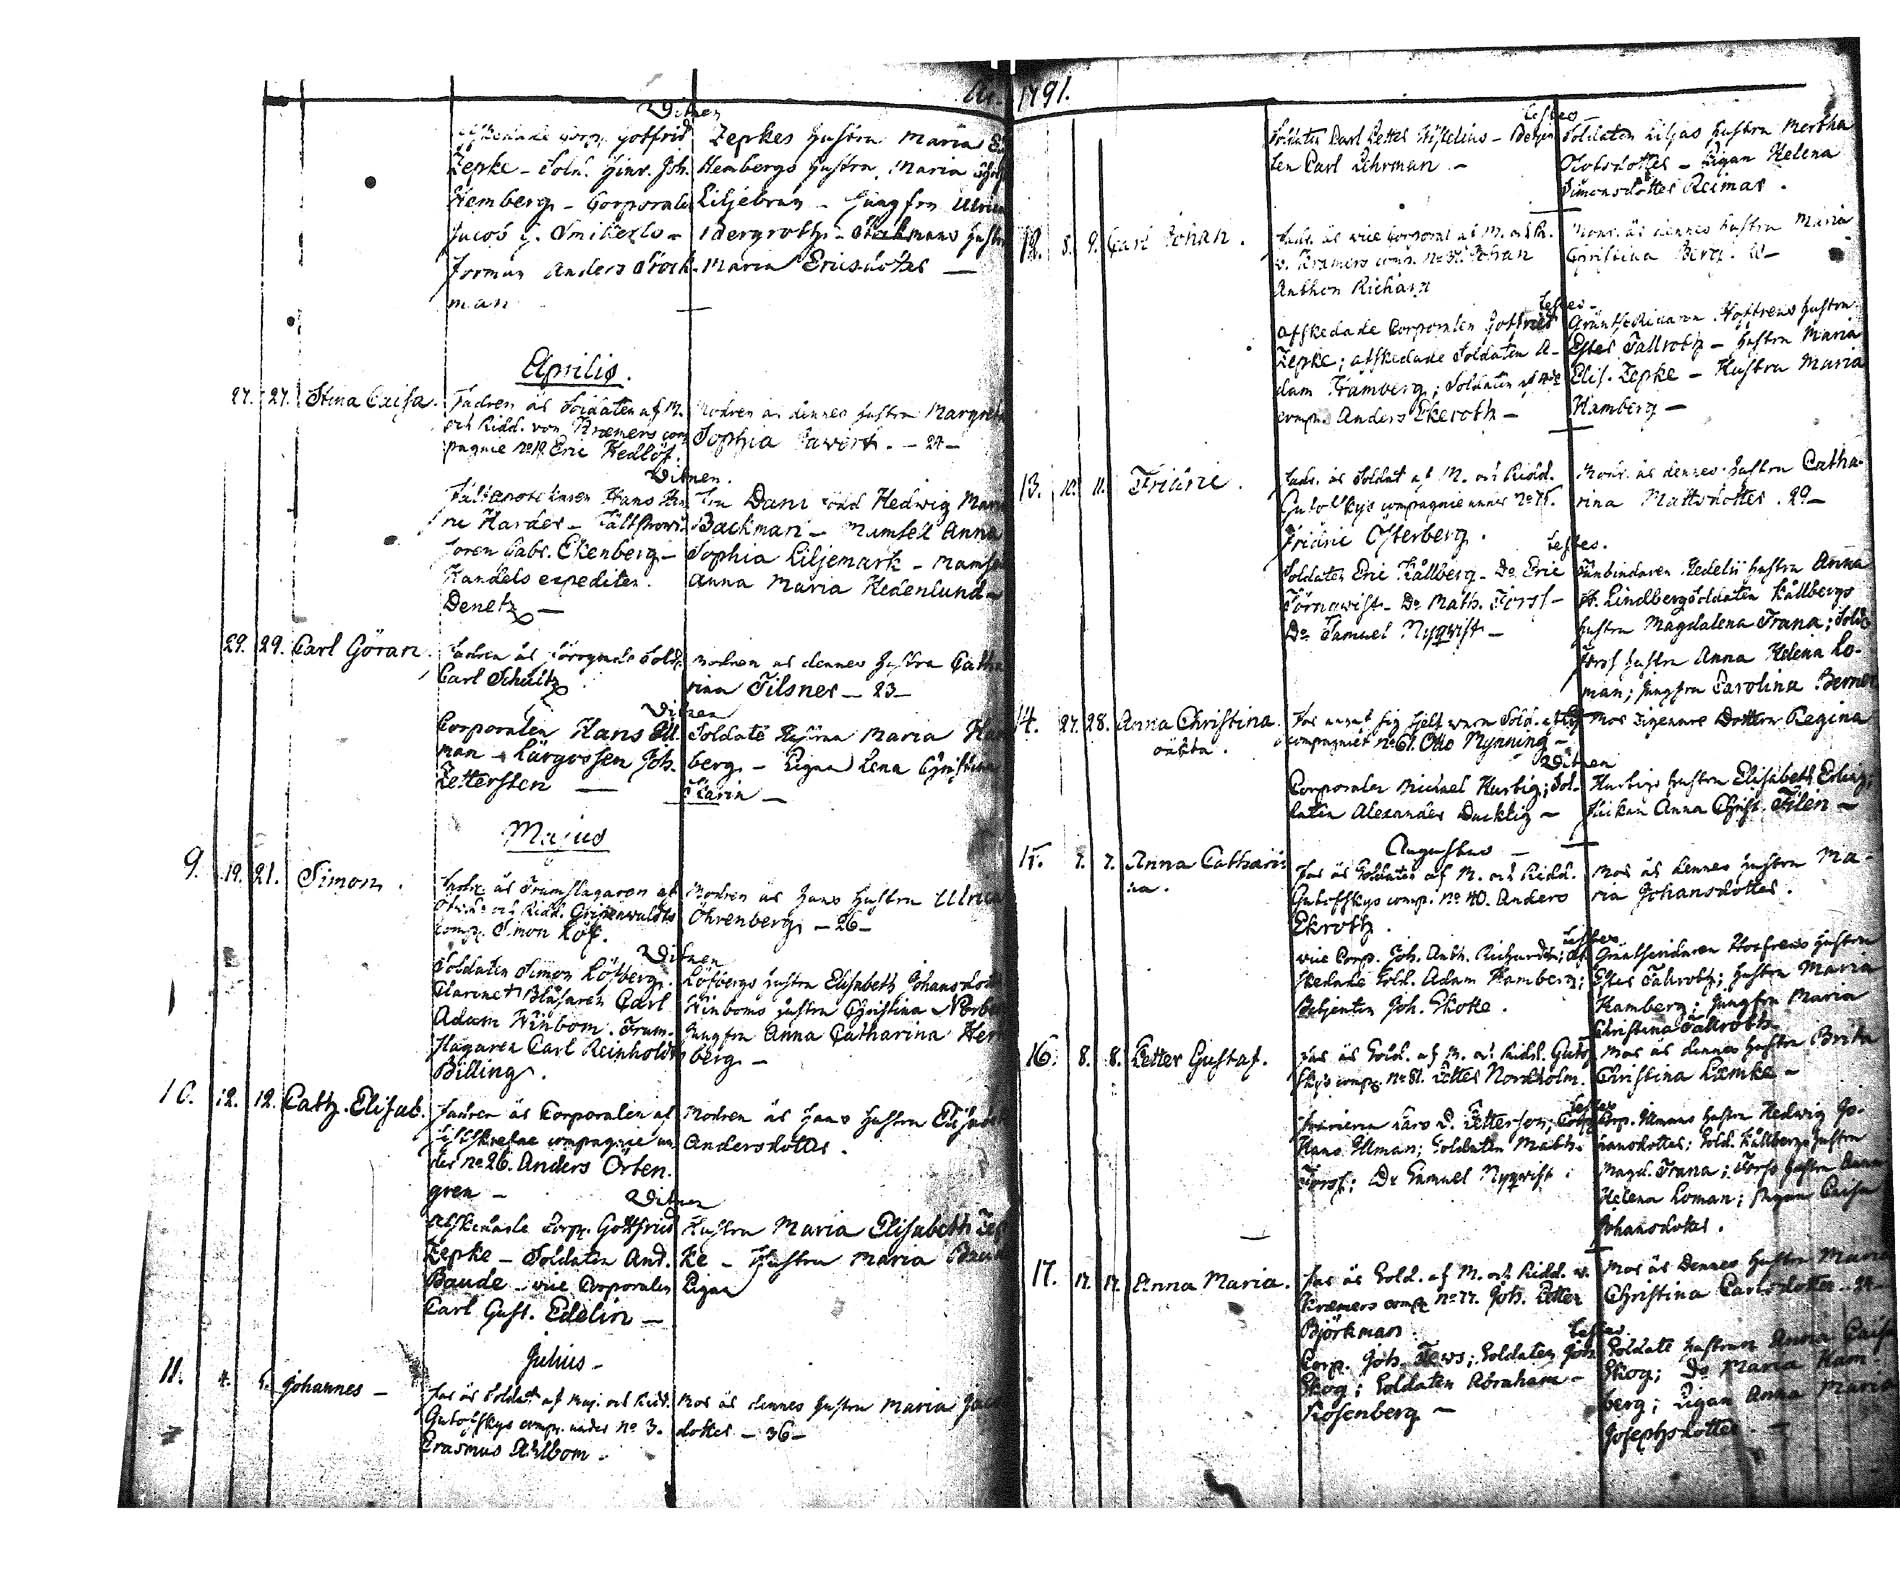 Ao. 1791.
Witnen
Afskedade Corp. Gotfrid
Zepke - Sold. Hinr. Joh.
Hemberg - Corporalen
Jacob
Forman Anders Stock-
man
Zepkes hustru Maria
Hembergs hustru, Maria
Liljebran - Jungfru Ulrica
Bergroth - Stockmans hustru
Maria Ericsdotter -
Aprilis.
27. 27. Stina Caisa.
Fadren är Soldaten af M.
och Ridd. von Kræmers com
pagnie No 19. Eric Hedlöf.
Modren är dennes hustru Margreta
Sophia - 24 -
Witnen.
Hans Hin
ric Harder - Fältskiärs
Gabr. Ekenberg -
Handels expediten
Denetz -
Fru Dani född Hedwig Maria
Backman - Mamsel Anna
Sophia Liljemark - Mamsel
Anna Maria Hedenlund -
29. 29. Carl Göran.
Fadren är Sold.
Carl Schultz
Modren är dennes hustru Catha
rina Tilsner - 23 -
Witnen
Corporalen Hans Ill
man - Lärgossen Joh.
Zettersten -
Soldate Hustrun Maria Ham
berg - Pigan Lena Christina
Karin -
Majus
9. 19. 21. Simon.
Fadr. är Trumslagaren af
Öfverste och Ridd. Gripenwaldts
comp. Simon Löf.
Modren är hans hustru Ulrica
Öhrenberg - 26 -
Witnen
Soldaten Simon Löfberg.
Clarinet Blåsaren Carl
Adam Winbom. Trum-
slagaren Carl Reinholdt
Billing.
Löfbergs hustru Elisabeth Johansdotter
Winboms hustru Christina Norberg
Jungfru Anna Catharina Hem
berg -
10. 12. 12. Cath. Elisab.
Fadren är Corporalen af
Lifskiefne compagnie un
der No 26. Anders Örten
gren -
Modren är hans hustru Elisabet
Andersdotter.
Witnen
Afskedade Corp. Gottfried
Zepke - Soldaten And.
Baude - vice Corporalen
Carl Gust. Edelin -
Hustru Maria Elisabeth Zep
ke - Hustru Maria
Pigan
Julius -
11. 4. 5. Johannes -
Far är Soldat af Maj. och Ridd.
Gutofskys comp. under No 3.
Erasmus Ahlbom.
Mor är dennes hustru Maria Jacobs
dotter - 36 -
Testes
Soldaten Carl Petter - Betjen
ten Carl Lehrman -
Soldaten Liljas hustru Mertha
Olofsdotter - Pigan Helena
Simonsdotter Reimar.
12. 8. 9. Carl Johan.
Fadr. är vice Corporal af M. och R.
v. Kræmers comp. No 31. Johan
Anthon Richard
Modr. är dennes hustru Maria
Christina Berg.
Testes -
Afskedade Corporalen Gottfried
Zepke; afskedade Soldaten A-
dam Hamberg; Soldaten af
comp. Anders Ekeroth -
Gräntseridaren Hoffrens hustru
Ester Tallroth - hustru Maria
Elis. Zepke - Hustru Maria
Hamberg -
13. 10. 11. Fridric.
Fadr. är Soldat af M. och Ridd.
Gutofskys compagnie under No 75.
Fridric Österberg.
Modr. är dennes hustru Catha-
rina Mattsdotter. 29 -
Testes.
Soldaten Eric Kållberg - Do Eric
Törnqwist - Do Math. Forss -
Do Samuel Nyqwist -
Tunbindaren Hedelii hustru Anna
Lindberg Soldaten Kållbergs
hustru Magdalena Trana; Sold.
Forss hustru Anna Helena Lo-
man; Jungfru Carolina Berner
14. 27. 28. Anna Christina.
oäkta.
Far angat sig sielf wara Sold. af Lif
compagniet No 61. Otto Nynning -
Mor Pigan Dottern Regina
Witnen
Corporalen Michael Hurbig; Sol-
daten Alexander Ducklig -
Hurbigs hustru Elisabeth Erling,
flickan Anna Christ. Filen -
Augustus -
15. 7. 7. Anna Cathari-
na.
Far är Soldaten af M. och Ridd.
Gutoffskys comp. No 40. Anders
Ekroth.
Mor är dennes hustru Ma-
ria Johansdotter.
Testes
vice Corp. Joh. Anth. Richard; Af-
skedade Sold. Adam Hamberg;
Betjenten Joh. Skotte.
Gräntseridaren Hoffrens hustru
Ester Tallroth; hustru Maria
Hamberg; Jungfru Maria
Christina Tallroth
16. 8. 8. Petter Gustaf.
Far är Sold. af M. och Ridd. Gutof
skys comp. No 81. Petter Nordholm.
Mor är dennes hustru Brita
Christina Læmke -
Testes
Lars P. Petterson; Corp.
Hans Illman; Soldaten Math.
Forss; Do Samuel Nyqwist.
Corp. Illmans hustru Hedwig Jo-
hansdotter; Sold. Kållbergs hustru
Magd. Trana; Forss hustru Anna
Helena Loman; Pigan Caisa
Johansdotter.
17. 17. 17. Anna Maria.
Far är Sold. af M. och Ridd. v.
Kræmers comp. No 77. Joh. Petter
Björkman.
Mor är Dennes hustru Maria
Christina Carlsdotter - 24 -
Testes
Corp. Joh. Tews; Soldaten Joh.
Skog; Soldaten Abraham -
Rosenberg -
Soldate hustrun Anna Caisa
Skog; Do Maria Ham-
berg; Pigan Anna Maria
Josephsdotter. -